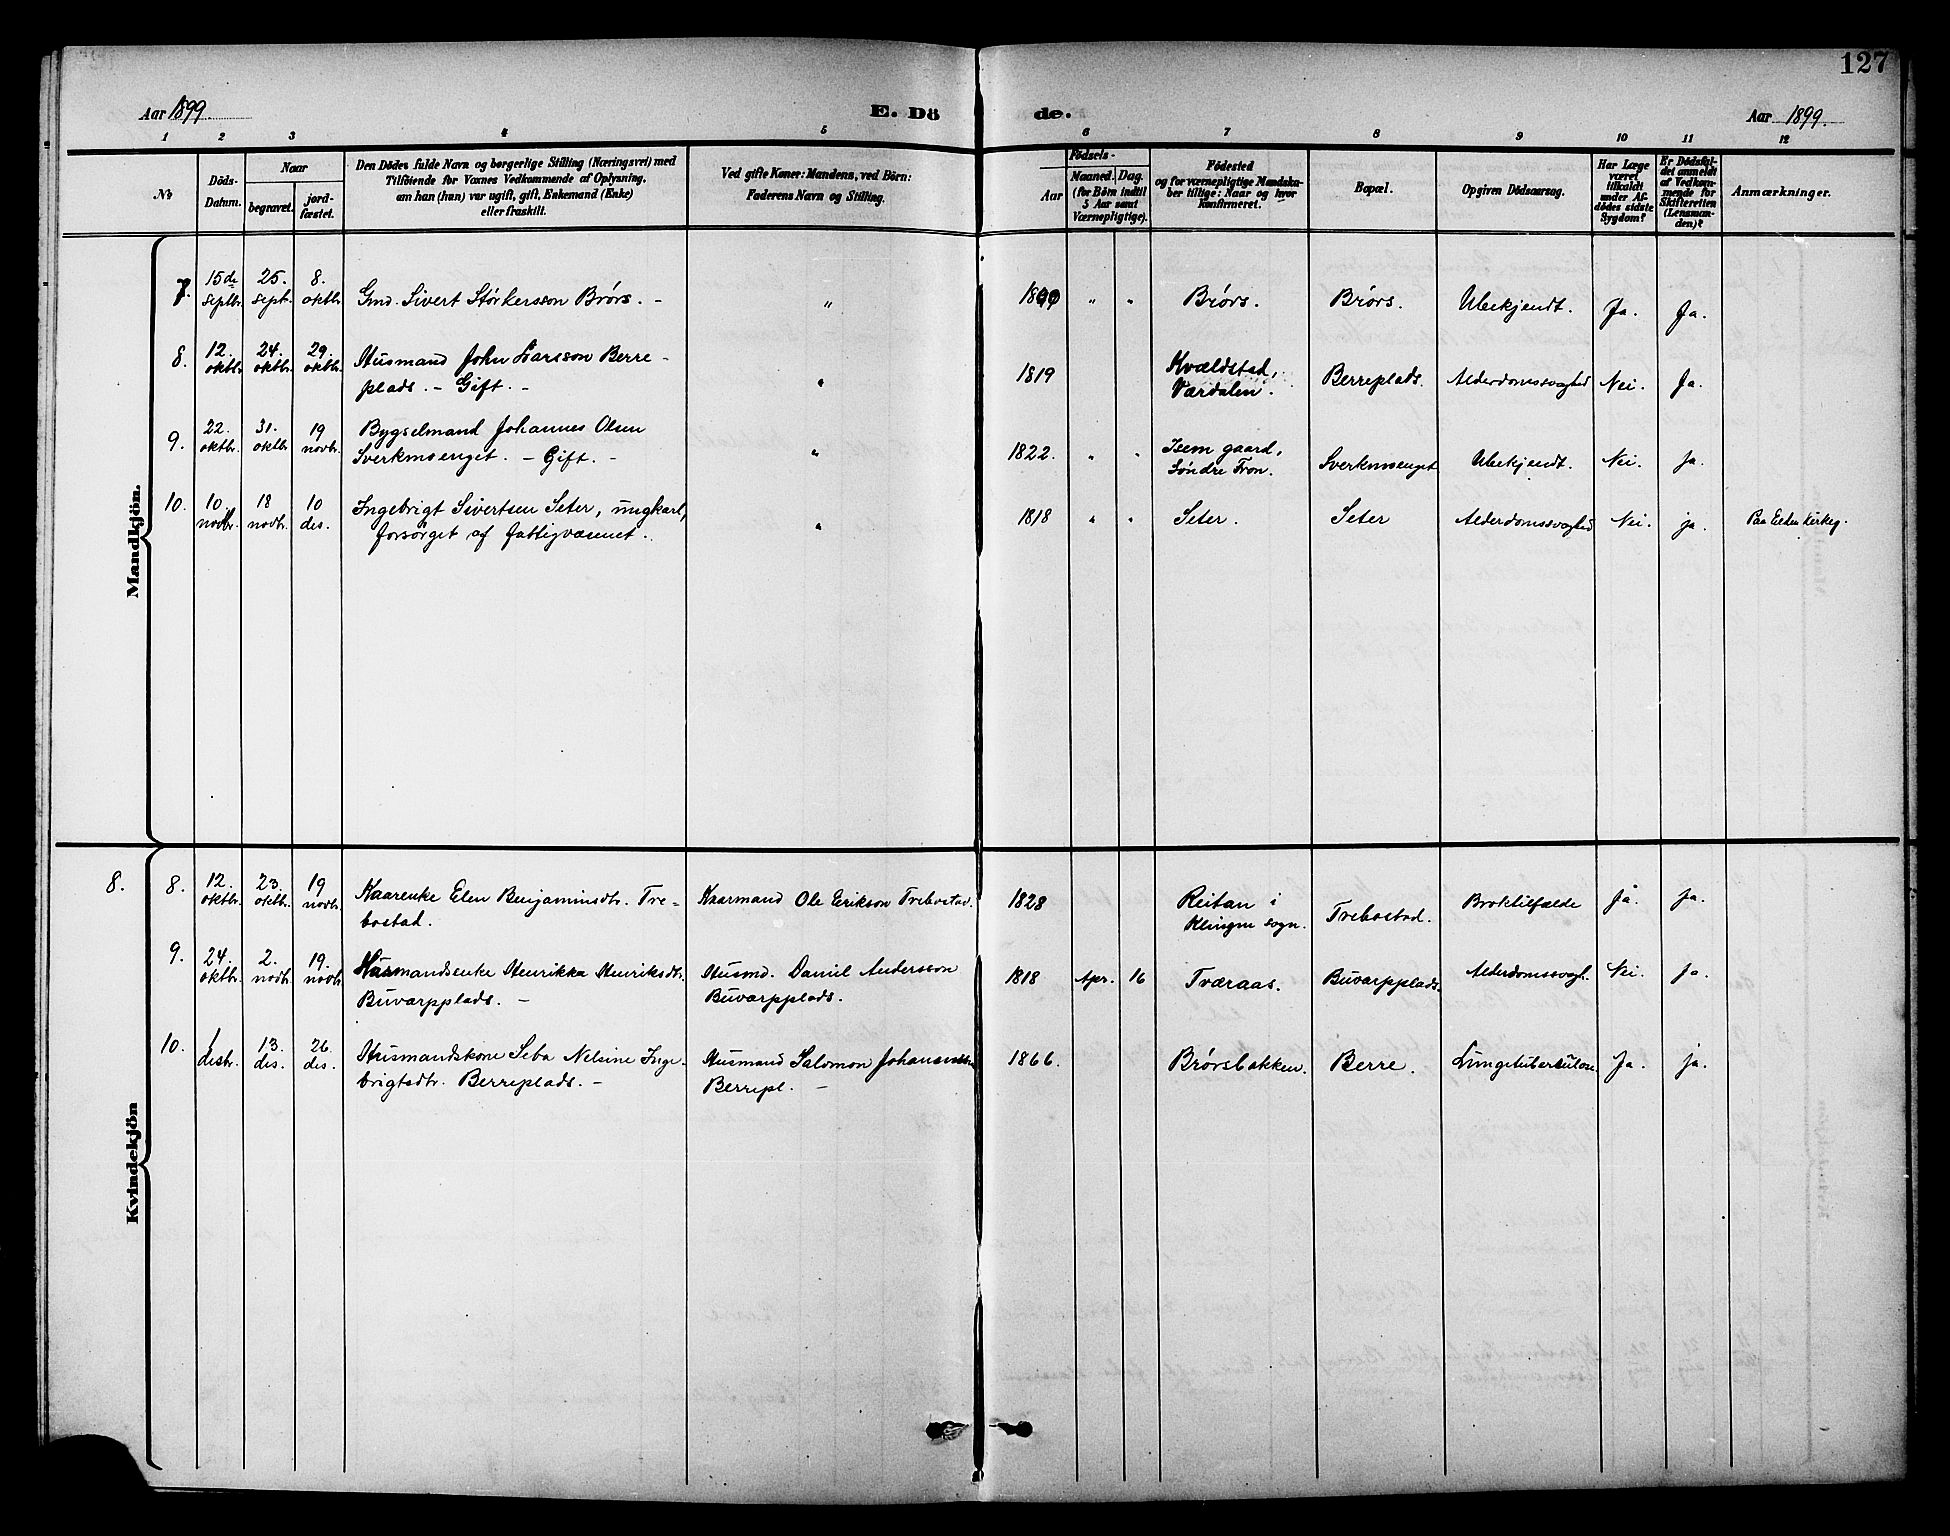 127
Aar 1899.
E. Dö de.
Aar 1899.
1 2 3 4 5 6 7 8 9 10 11 12
No
Döds-
Datum.
Naar
begravet.
jord-
fæstet.
Den Dödes fulde Navn og borgerlige Stilling (Næringsvei) med
Tilföiende for Voxnes Vedkommende af Oplysning,
om han (hun) var ugift, gift, Enkemand (Enke)
eller fraskilt.
Ved gifte Koner: Mandens, ved Börn:
Faderens Navn og Stilling.
Födsels-
Aar
Maaned. Dag.
(for Börn indtil
5 Aar samt
Værnepligtige).
Födested
og for værnepligtige Mandska-
ber tillige: Naar og hvor
konfirmeret.
Bopæl.
Opgiven Dödsaarsag.
Har Læge
været
tilkaldt
under Af-
dödes sidste
Sygdom?
Er Dödsfal-
det anmeldt
af Vedkom-
mende for
Skifteretten
(Lensman-
den)?
Anmærkninger.
Mandkjön.
7. 15de septbr. 25. sept. 8. oktbr. Gmd. Sivert Störkersson Brörs. - " " " Brörs. Brörs. Ubekjendt. Ja. Ja.
8. 12. oktbr. 24. oktbr. 29. oktbr. Husmand John Larsson Berre-
plads. - Gift. - " 1819 Kvældstad,
Værdalen. Berreplads. Alderdomssvaghed Nei. Ja.
9. 22. oktbr. 31. oktbr 19 novbr. Bygselmand Johannes Olsen
Sverkmoenget. - Gift. - " 1822. " " Isem gaard,
Söndre Fron. Sverkmoenget Ubekjendt. Nei. Ja.
10. 10. novbr. 18 novbr. 10 des. Ingebrigt Sivertsen Seter, ungkarl,
forsörget af fattigvæsenet. " 1818 " " Seter. Seter Alderdomssvaghed Nei. ja. Paa kirkeg.
Kvindekjön
8. 8. 12. oktbr. 23. oktbr. 19 novbr. Kaarenke Elen Benjaminsdtr. Tre-
bostad. Kaarmand Ole Erikson Trebostad. 1828 Reitan i
Klingen sogn. Trebostad. Broktilfælde Ja. Ja.
9. 24. oktbr. 2. novbr. 19. novbr. Husmandsenke Henrikka Henriksdtr.
Buvarpplads. - Husmd. Daniel Andersson
Buvarpplads. 1818 Apr. 16 Tværaas. Buvarpplads. Alderdomssvagh. Nei. Ja.
10. 1 desbr. 13. des. 26. des. Husmandskone Seba Nelsine Inge-
brigtsdtr. Berreplads. - Husmand Salomon Johansen
Berrepl. - 1866. Brörsbakken. Berre. Lungetuberkulose Ja. ja.